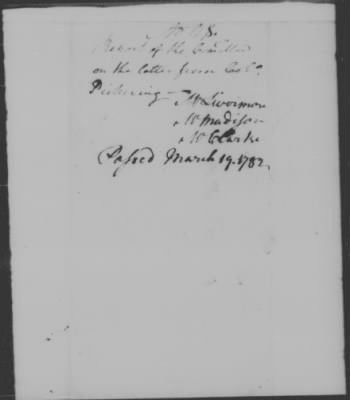 Report of the Committee
on the letter from Colo.
Pickering —
Mr Livermore
Mr Madison
Mr Clarke
Passed March 19. 1782